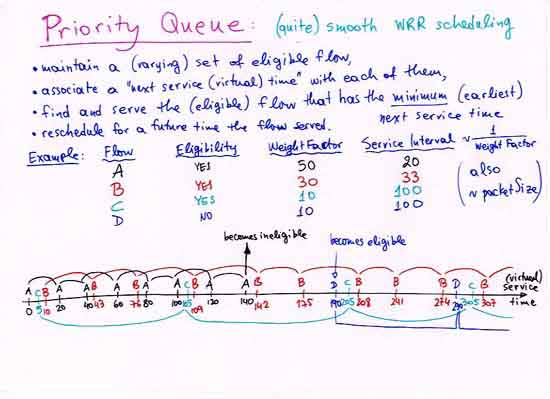 Priority Queue: (quite) smooth WRR scheduling
• maintain a (varying) set of eligible flow,
• associate a "next service (virtual) time" with each of them,
• find and serve the (eligible) flow that has the minimum (earliest)
next service time
• reschedule for a future time the flow served.
Example: Flow Eligibility Weight Factor Service Interval ~ 1 / Weight Factor
A YES 50 20
B YES 30 33
C YES 10 100
D NO 10 100
(also ~ packet Size)
becomes ineligible becomes eligible
A C B A A B A B A A C B A A B B D C B B B D C B (virtual) service time
0 5 10 20 40 43 60 76 80 100 105 109 120 140 142 175 190 205 208 241 274 290 305 307